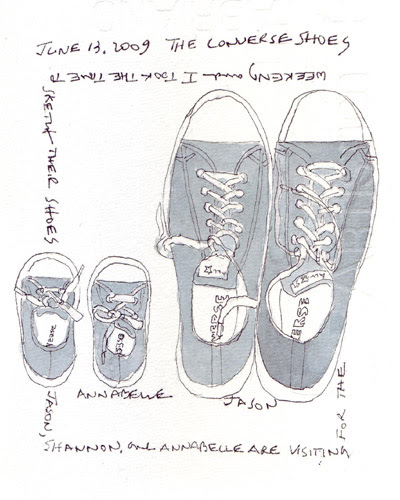 JUNE 13, 2009 THE CONVERSE SHOES
JASON,
SHANNON, and ANNABELLE ARE VISITING
FOR THE
WEEKEND and I TOOK THE TIME TO
SKETCH THEIR SHOES
ANNABELLE
JASON